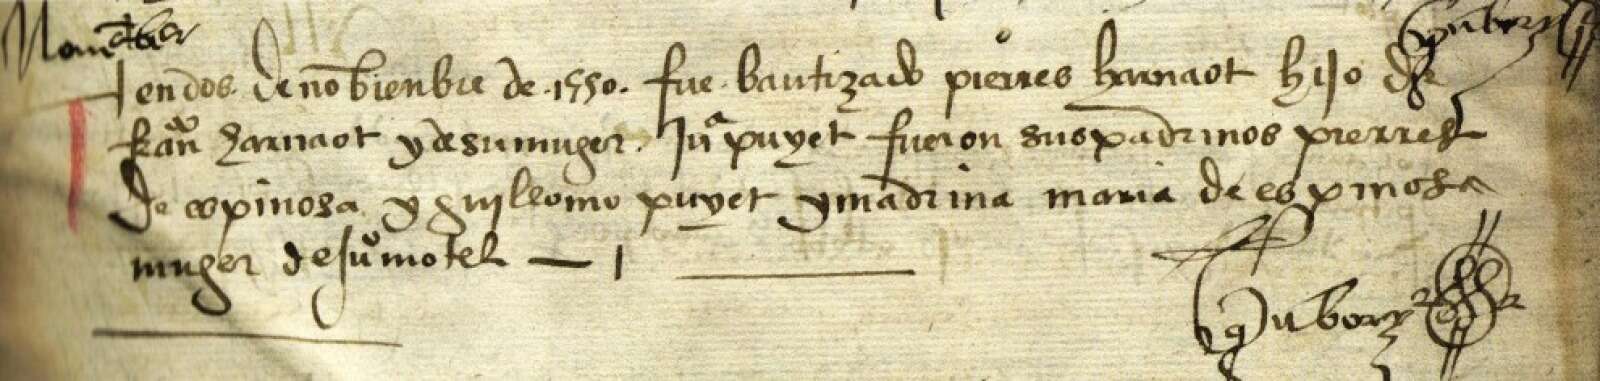 en dos de nobienbre de .1550. fue bautizado pierres harnaot hijo de
harnaot y de su muger. Juª puyet fueron sus padrinos pierres
de espinosa y guillomo puyet y madrina maria de espinosa
muger de Juº motel — 1